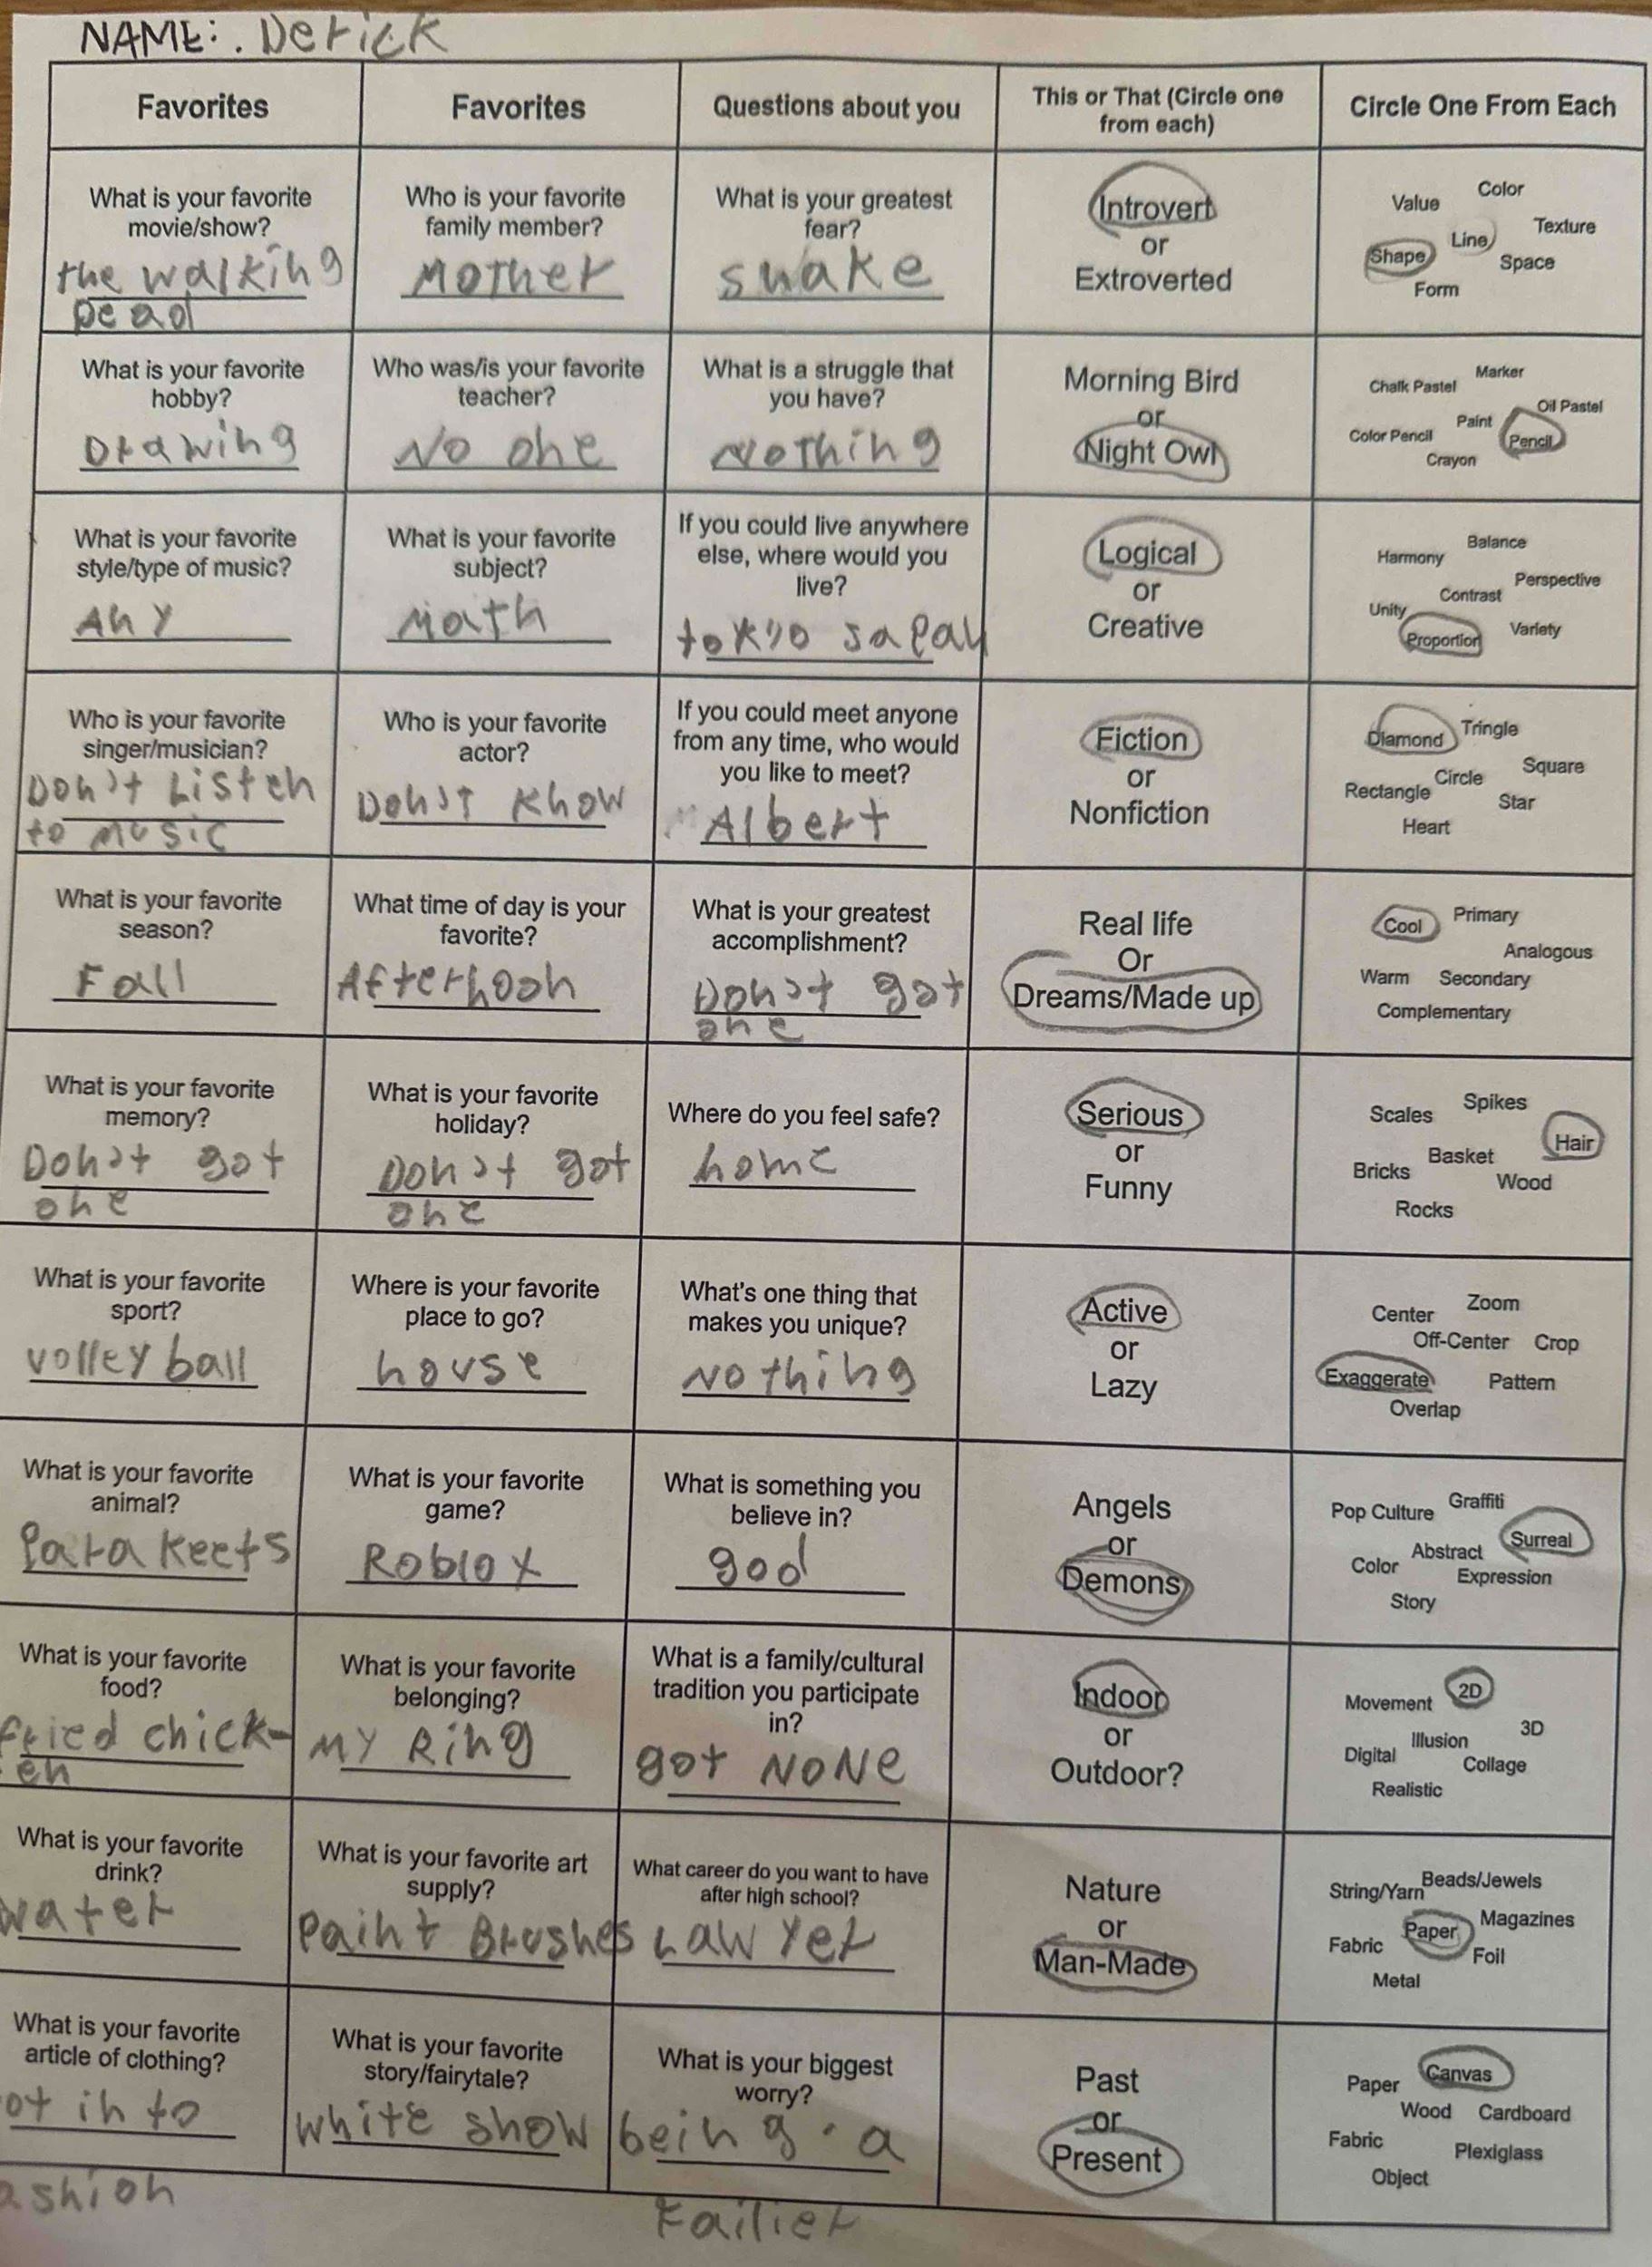 NAME: . Derick
Favorites
Favorites
Questions about you
This or That (Circle one
from each)
Circle One From Each
What is your favorite
movie/show?
the walking
Dead
Who is your favorite
family member?
Mother
What is your greatest
fear?
snake
Introvert
or
Extroverted
Color
Value
Texture
Line
Shape
Space
Form
What is your favorite
hobby?
Drawing
Who was/is your favorite
teacher?
No one
What is a struggle that
you have?
Nothing
Morning Bird
or
Night Owl
Marker
Chalk Pastel
Oil Pastel
Paint
Color Pencil
Pencil
Crayon
What is your favorite
style/type of music?
Any
What is your favorite
subject?
Math
If you could live anywhere
else, where would you
live?
Logical
or
Creative
Balance
Harmony
Perspective
Contrast
Unity
Proportion
Variety
Who is your favorite
singer/musician?
Don't Listen
to music
Who is your favorite
actor?
Don't know
If you could meet anyone
from any time, who would
you like to meet?
Albert
Fiction
or
Nonfiction
Diamond
Tringle
Square
Circle
Rectangle
Star
Heart
What is your favorite
season?
Fall
What time of day is your
favorite?
Afternoon
What is your greatest
accomplishment?
Don't got
one
Real life
Or
Dreams/Made up
Cool
Primary
Analogous
Warm Secondary
Complementary
What is your favorite
memory?
Don't got
one
What is your favorite
holiday?
Don't got
one
Where do you feel safe?
home
Serious
or
Funny
Spikes
Scales
Hair
Basket
Bricks
Wood
Rocks
What is your favorite
sport?
volleyball
Where is your favorite
place to go?
house
What's one thing that
makes you unique?
Nothing
Active
or
Lazy
Zoom
Center
Off-Center Crop
Exaggerate
Pattern
Overlap
What is your favorite
animal?
Parakeets
What is your favorite
game?
Roblox
What is something you
believe in?
god
Angels
or
Demons
Graffiti
Pop Culture
Surreal
Abstract
Color
Expression
Story
What is your favorite
food?
fried chick-
en
What is your favorite
belonging?
My Ring
What is a family/cultural
tradition you participate
in?
got NONE
Indoor
or
Outdoor?
2D
Movement
3D
Illusion
Digital
Collage
Realistic
What is your favorite
drink?
water
What is your favorite art
supply?
Paint Brushes
What career do you want to have
after high school?
Lawyer
Nature
or
Man-Made
Beads/Jewels
String/Yarn
Magazines
Paper
Fabric
Foil
Metal
What is your favorite
article of clothing?
ot into
ashion
What is your favorite
story/fairytale?
white show
What is your biggest
worry?
being a
Failier
Past
or
Present
Canvas
Paper
Wood Cardboard
Fabric
Plexiglass
Object